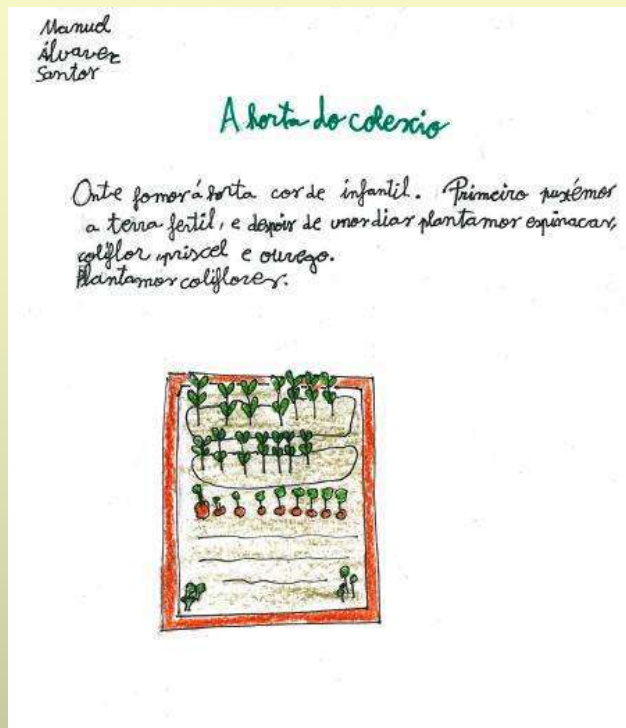 Manuel
Álvarez
Santos
A horta do colexio
Onte fomos á horta cos de infantil. Primeiro puxémos
a terra fertil, e depois de unos dias plantamos espinacas,
coliflor, prixel e ourego.
Plantamos coliflores.